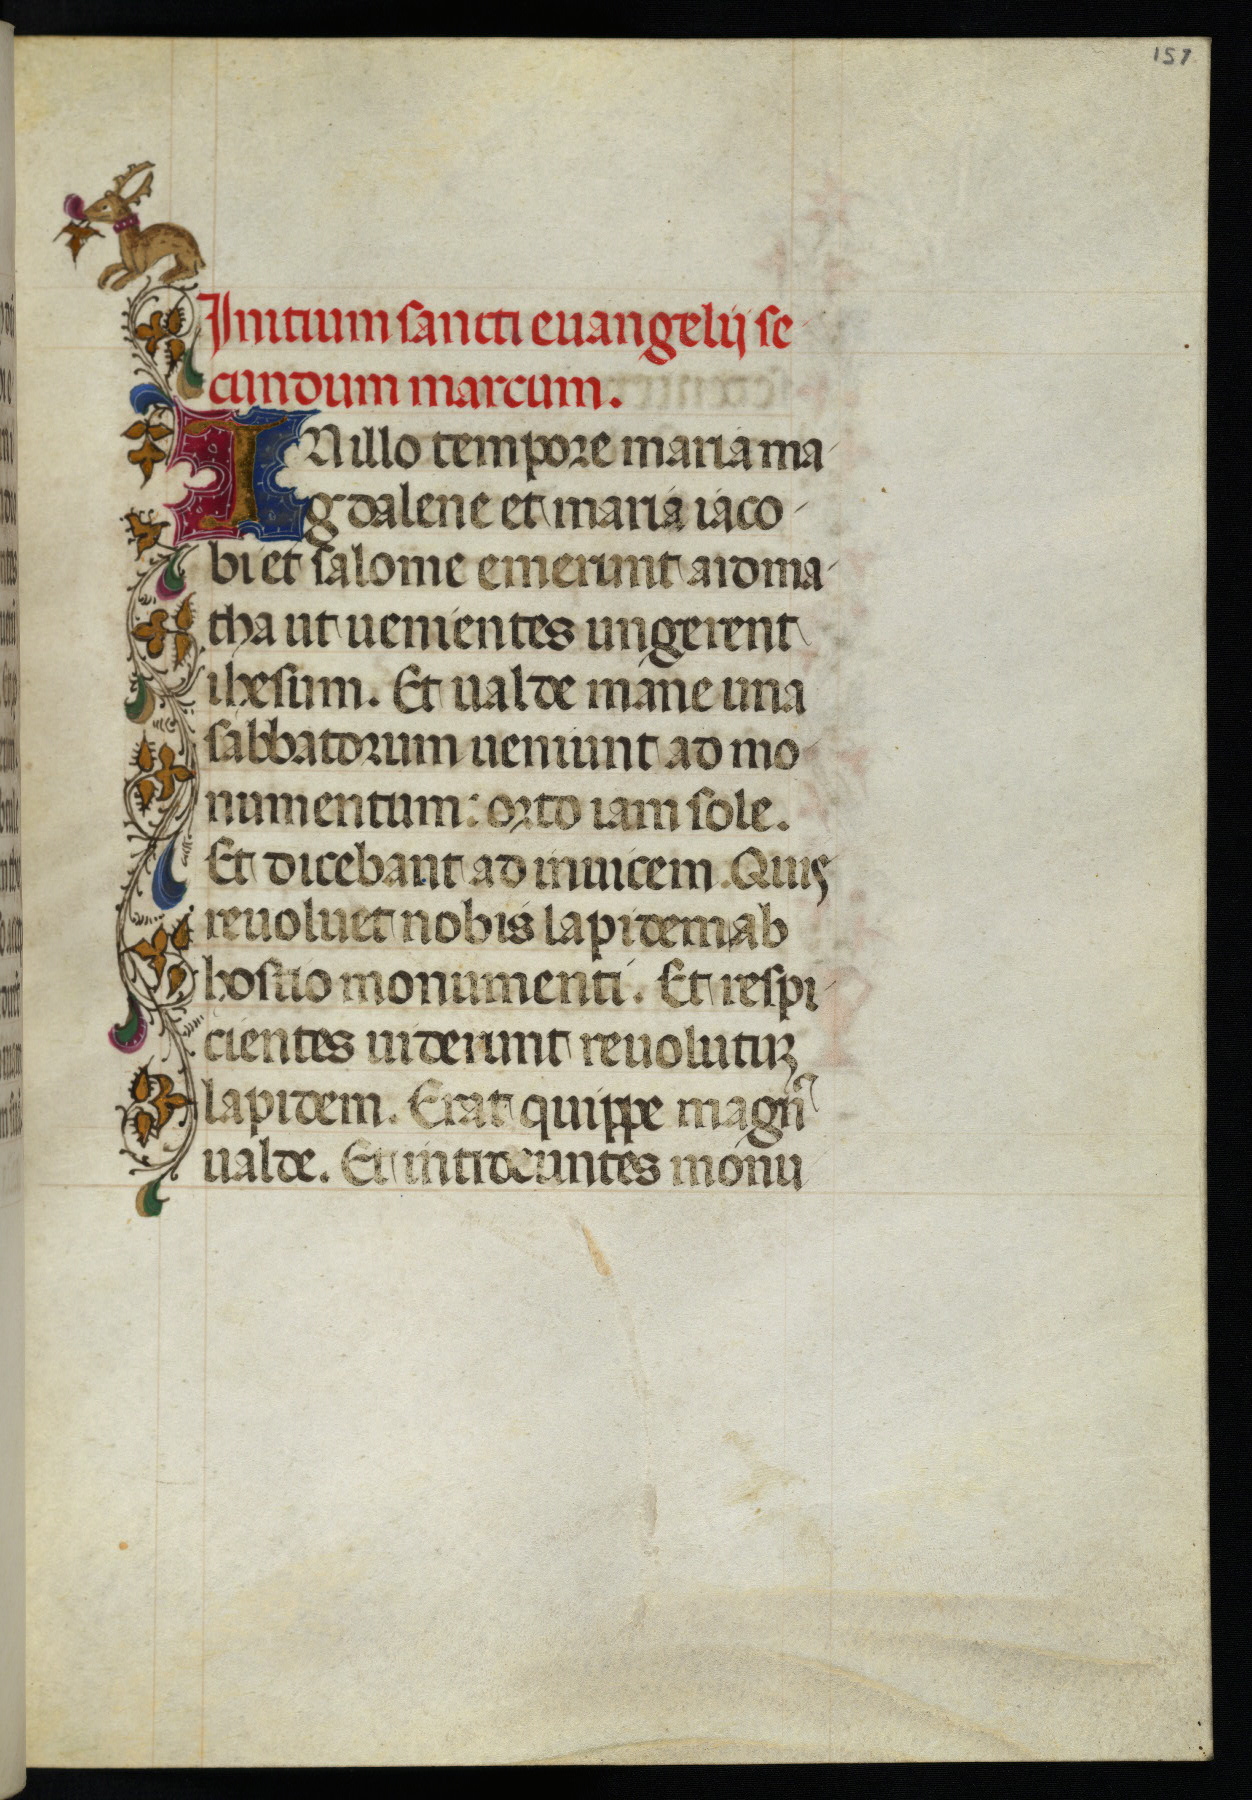 157
Initium sancti euangelij se
cundum marcum.
IN illo tempore maria ma-
gdalene et maria iaco-
bi et salome emerunt aroma-
tha ut uenientes ungerent
ihesum. Et ualde mane una
sabbatorum ueniunt ad mo
numentum: orto iam sole.
Et dicebant ad inuicem. Quis
reuoluet nobis lapidem ab
hostio monumenti. Et respi-
cientes uiderunt reuolutuꝫ
lapidem. Erat quippe magn᷒
ualde. Et introeuntes monu